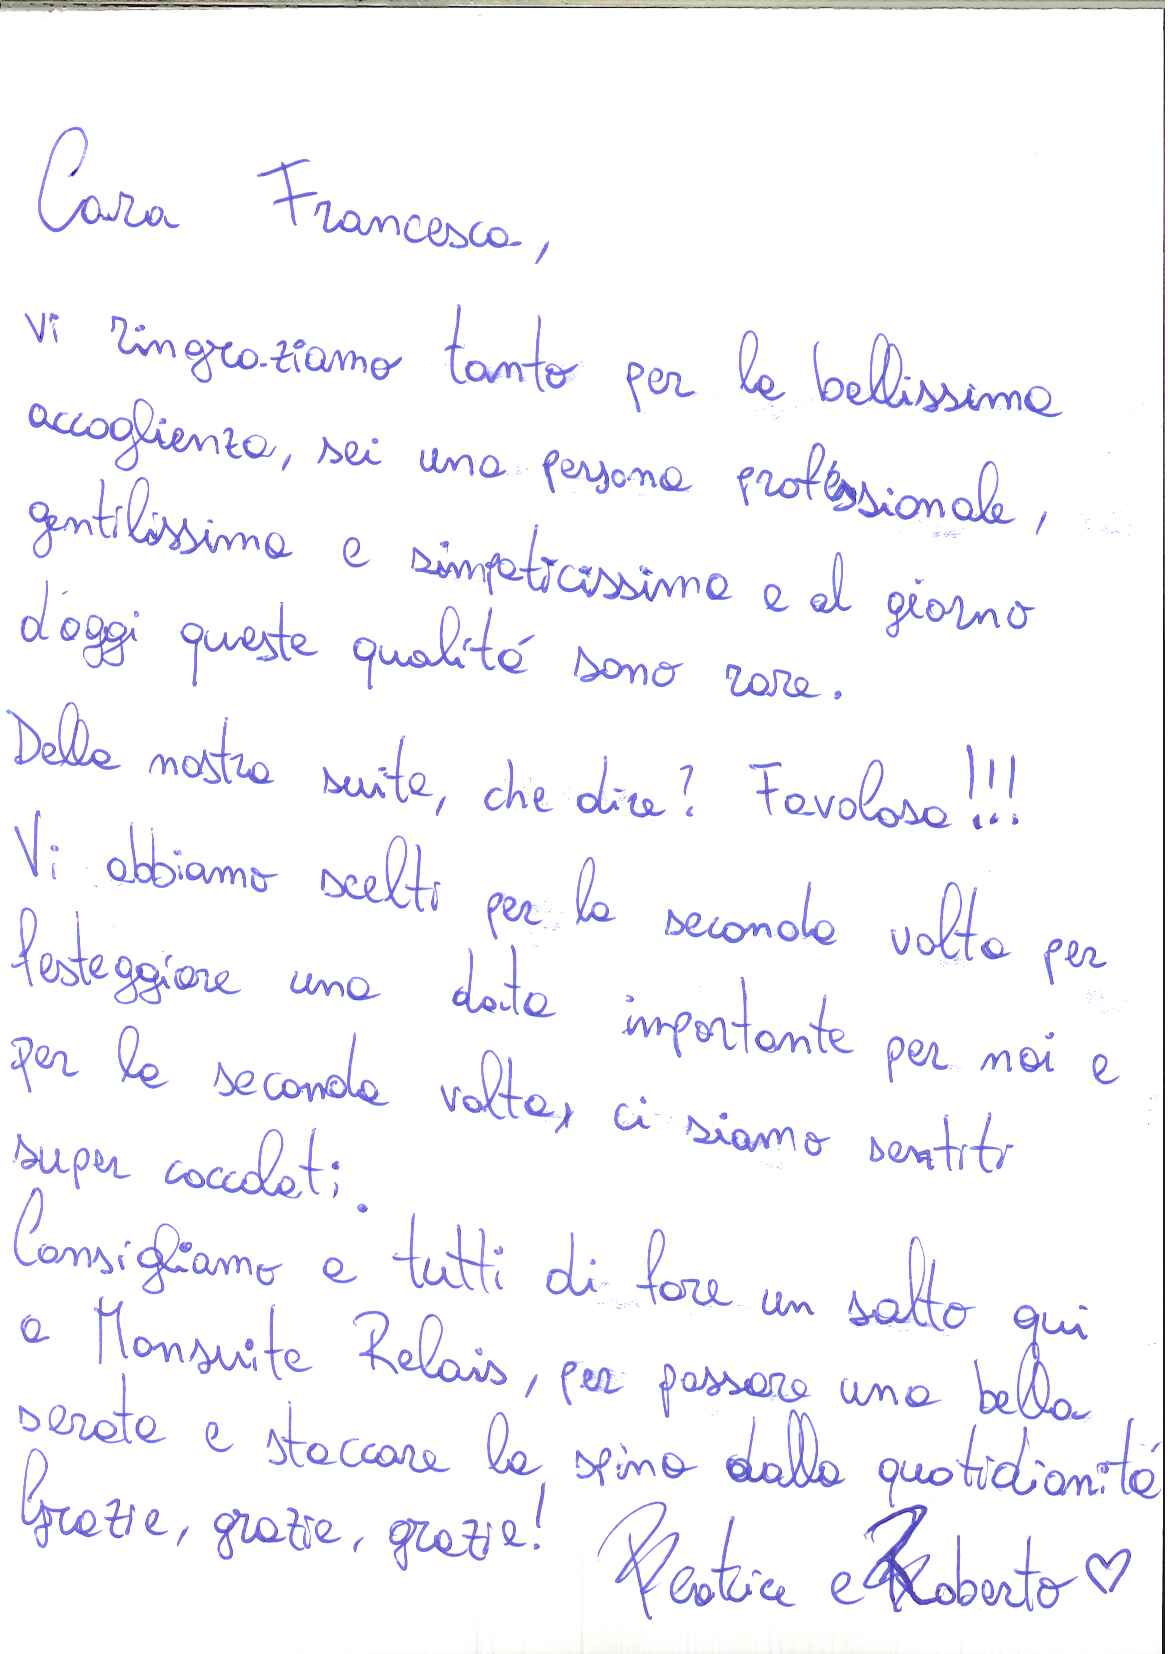 Cara Francesca,
vi ringraziamo tanto per la bellissima
accoglienza, sei una persona professionale,
gentilissima e simpaticissima e al giorno
d'oggi queste qualità sono rare.
Della nostra suite, che dire? Favolosa!!!
Vi abbiamo scelti per la seconda volta per
festeggiare una data importante per noi e
per la seconda volta, ci siamo sentiti
super coccolati.
Consigliamo a tutti di fare un salto qui
a Monsuite Relais, per passare una bella
serata e staccare la spina dalla quotidianità
Grazie, grazie, grazie!
Beatrice e Roberto ♡